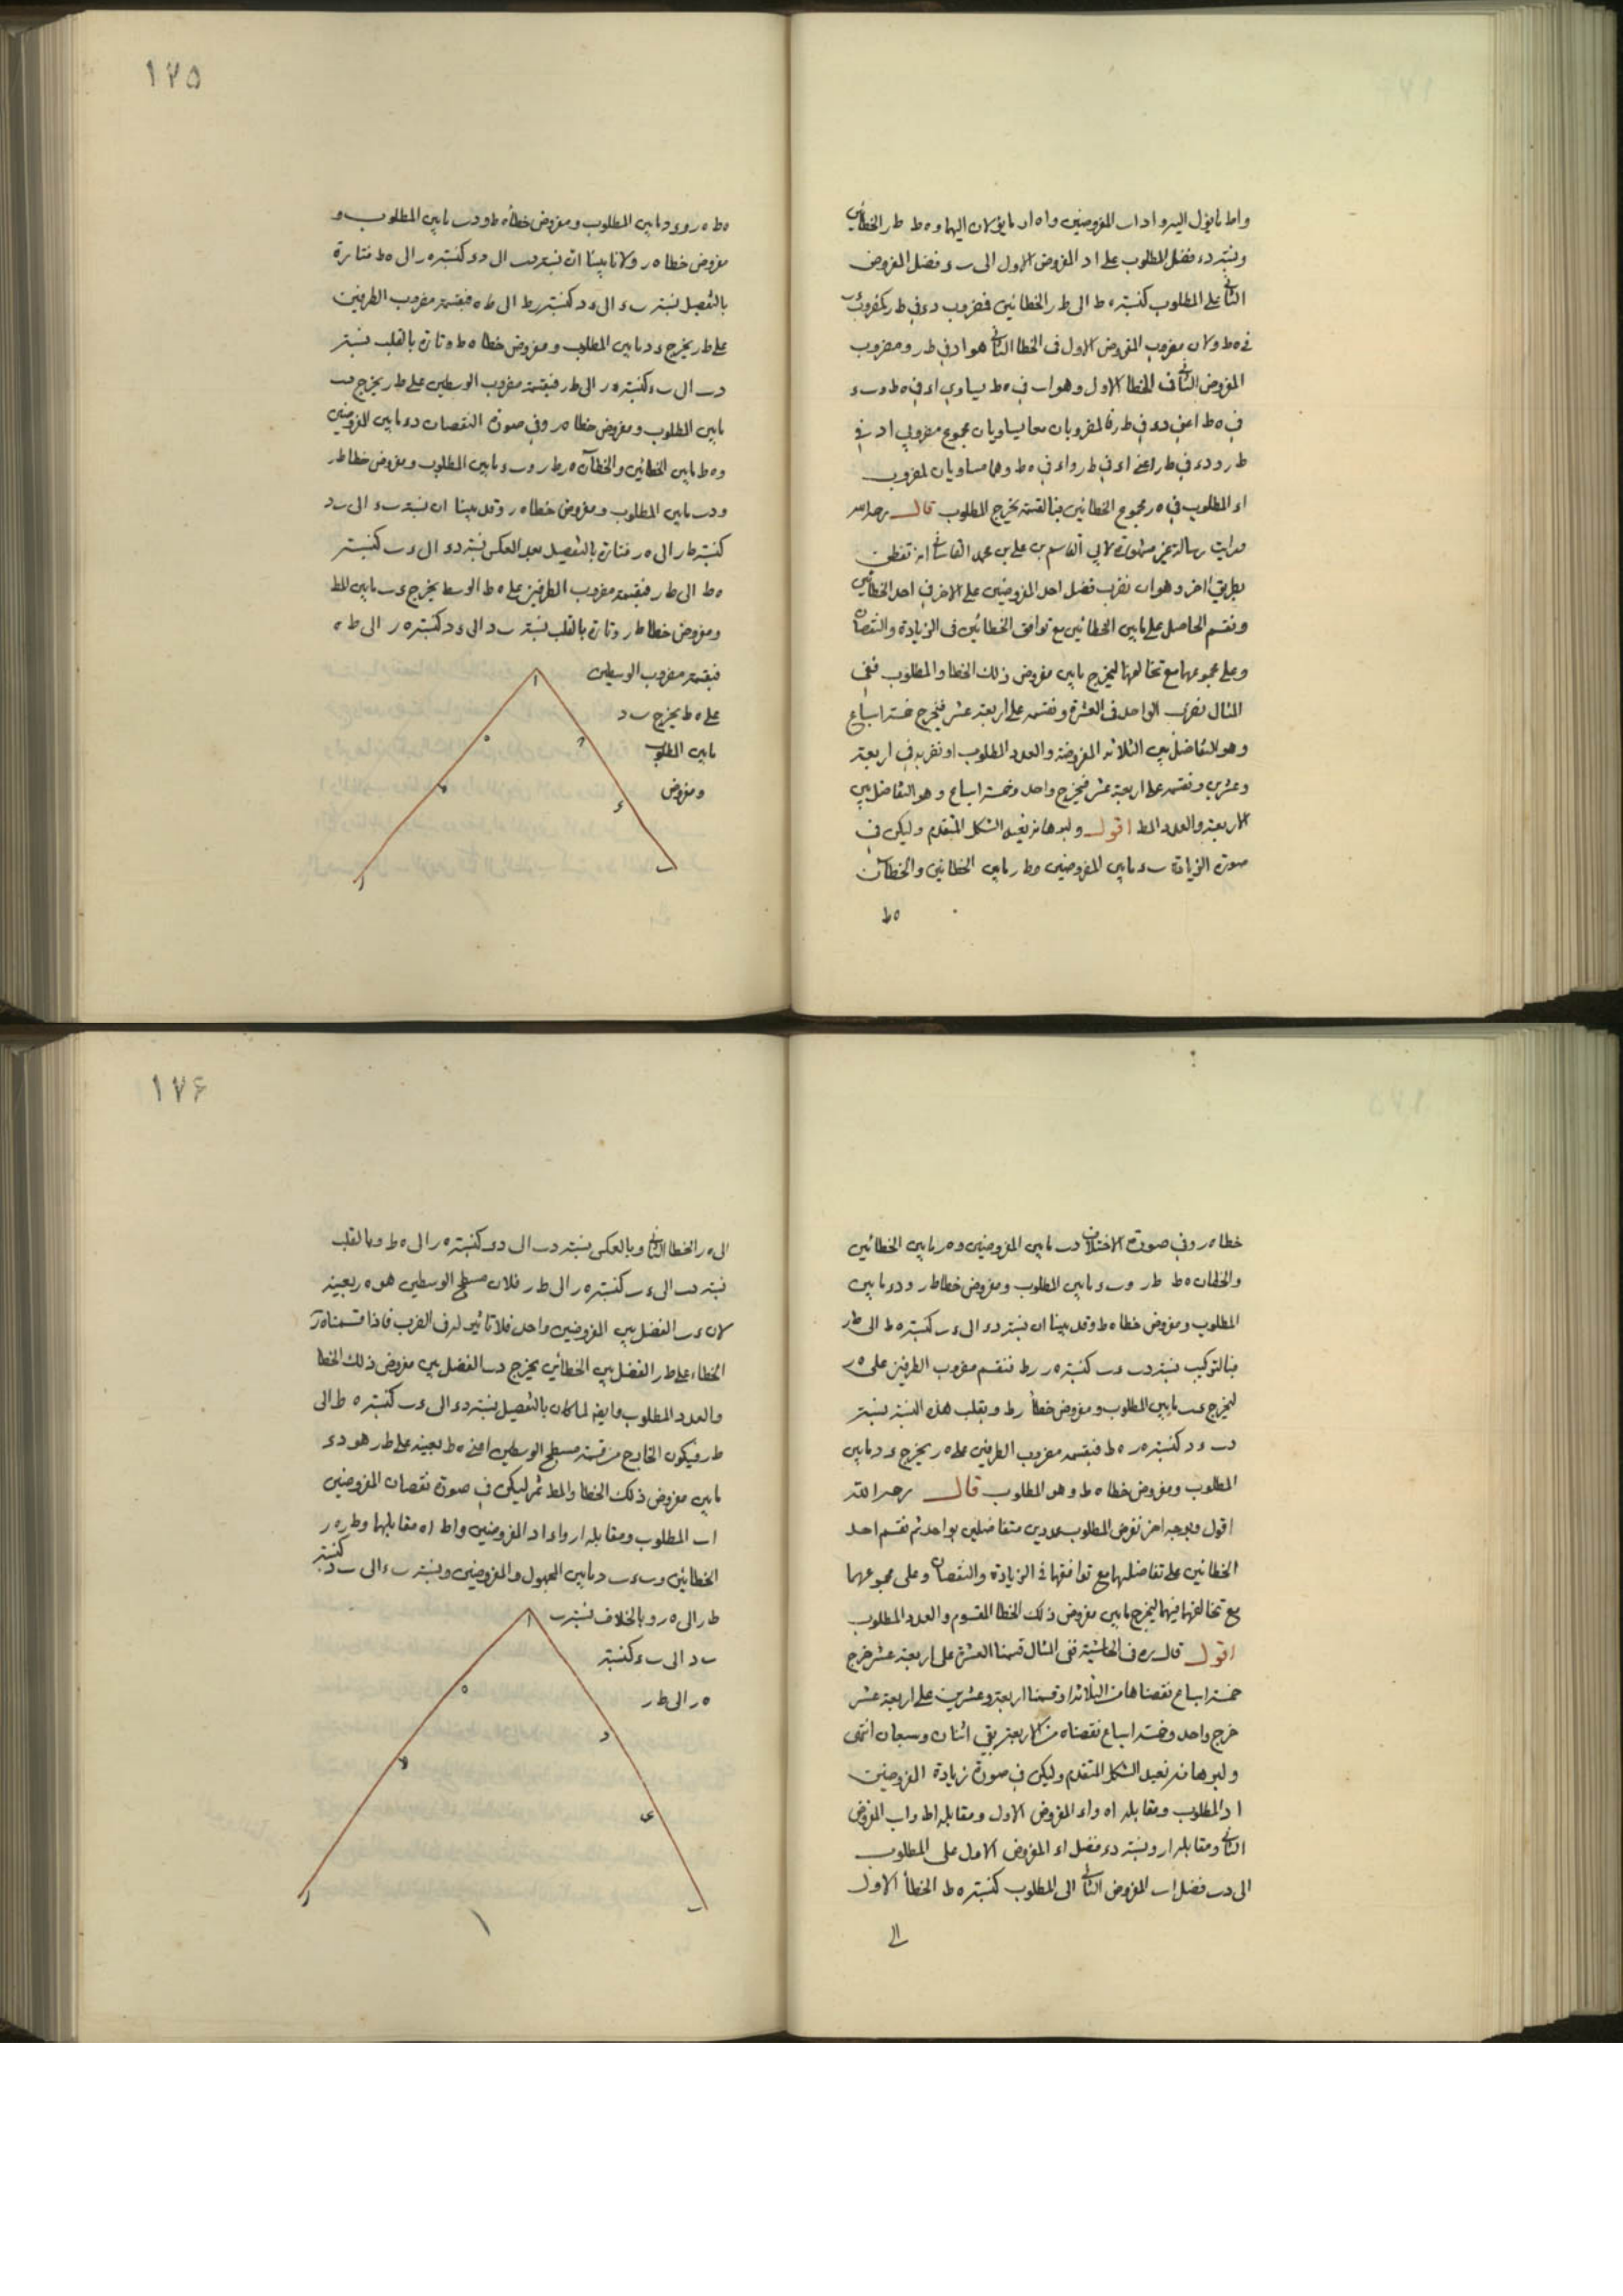 واط ما يؤل اليه و اد اب المفروضين و اه ار ما يؤلان اليهما و ه ط ط ر الخطائين
ونسبة د ء فضل المطلوب على اد المفروض الاول الى ب ء فضل المفروض
الثاني على المطلوب كنسبة ه ط الى ط ر الخطائين فمضروب د ء في ط ر كمضروب ء ب
في ه ط ولان مضروب المفروض الاول في الخطا الثاني هو اد في ط ر ومضروب
المفروض الثاني في الخطا الاول وهو اب في ه ط يساوي اء في ه ط و ب ء
في ه ط اعني د ء في ط ر فالمضروبان معا يساويان مجموع مضروبي اد في
ط ر و د ء في ط ر اعني اء في ط ر و اء في ه ط وهما مساويان لمضروب
اء المطلوب في ه ر مجموع الخطائين فبالقسمة يخرج المطلوب قال رحمه الله
في الزيادة والنقصان
ونقسم الحاصل على ما بين الخطائين مع توافق الخطائين في الزيادة والنقصان
وعلى مجموعهما مع تخالفهما ليخرج ما بين مفروض ذلك الخطا والمطلوب ففي
المثال نضرب الواحد في العشرة ونقسمه على اربعة عشر فيخرج خمسة اسباع
وهو التفاضل بين الثلاثة المفروضة والعدد المطلوب او نضربه في اربعة
وعشرين ونقسمه على اربعة عشر فيخرج واحد وخمسة اسباع وهو التفاضل بين
الاربعة والعدد المط اقول ولبرهانه نعيد الشكل المتقدم وليكن في
صورة الزيادة ب ء ما بين المفروضين و ط ر ما بين الخطائين والخطآن
ه ط
١٧٥
ه ط ه ر و ء د ما بين المطلوب ومفروض خطأ ه ط و د ب ما بين المطلوب و
مفروض خطا ه ر ولانا بينا ان نسبة د ب الى د ء كنسبة ه ر الى ه ط فتارة
بالتفصيل نسبة ب ء الى ء د كنسبة ر ط الى ط ه فبقسمة مضروب الطرفين
على ط ر يخرج ء د ما بين المطلوب ومفروض خطا ه ط وتارة بالقلب نسبة
د ب الى ب ء كنسبة ه ر الى ط ر فبقسمة مضروب الوسطين على ط ر يخرج د ب
ما بين المطلوب ومفروض خطا ه ر وفي صورة النقصان د ء ما بين المفروضين
و ه ط ما بين الخطائين والخطآن ه ر ط ر و ب ء ما بين المطلوب ومفروض خطا ط ر
و د ب ما بين المطلوب ومفروض خطا ه ر وقد بينا ان نسبة ب ء الى ب د
كنسبة ط ر الى ه ر فتارة بالتفصيل بعد العكس نسبة د ء الى ء ب كنسبة
ه ط الى ط ر فبقسمة مضروب الطرفين على ه ط الوسط يخرج ء ب ما بين المط
ومفروض خطا ط ر وتارة بالقلب نسبة ب د الى ء د كنسبة ه ر الى ط ه
فبقسمة مضروب الوسطين
على ه ط يخرج ب د
ما بين المطلوب
ومفروض
خطا ه ر وفي صورة الاختلاف د ب ما بين المفروضين و ه ر ما بين الخطائين
والخطآن ه ط ط ر و ب ء ما بين المطلوب ومفروض خطا ط ر و د ء ما بين
المطلوب ومفروض خطا ه ط وقد بينا ان نسبة د ء الى ء ب كنسبة ه ط الى ط ر
فبالتركيب نسبة د ب ء ب كنسبة ه ر ر ط فنقسم مضروب الطرفين على ه ر
ليخرج ء ب ما بين المطلوب ومفروض خطأ ر ط وبقلب هذه النسبة نسبة
د ب ء د كنسبة ه ر ه ط فبقسمة مضروب الطرفين على ه ر يخرج ء د ما بين
المطلوب ومفروض خطا ه ط وهو المطلوب قال رحمه الله
اقول وبوجه اخر نفرض المطلوب عددين متفاضلين بواحد ثم نقسم احد
الخطائين على تفاضلهما مع توافقهما في الزيادة والنقصان وعلى مجموعهما
مع تخالفهما فيهما ليخرج ما بين مفروض ذلك الخطا المقسوم والعدد المطلوب
اقول قال ره في الحاشية ففي المثال قسمنا العشرة على اربعة عشر خرج
خمسة اسباع نقصناها من الثلاثة او قسمنا اربعة وعشرين على اربعة عشر
خرج واحد وخمسة اسباع نقصناه من الاربعة بقي اثنان وسبعان انتهى
ولبرهانه نعيد الشكل المتقدم وليكن في صورة زيادة المفروضين
اد المطلوب ومقابله اه و اء المفروض الاول ومقابله اط و اب المفروض
الثاني ومقابله ار ونسبة د ء فضل اء المفروض الاول على المطلوب
الى د ب فضل اب المفروض الثاني الى المطلوب كنسبة ه ط الخطأ الاول
الى
١٧۶
الى ه ر الخطا الثاني وبالعكس نسبة د ب الى د ء كنسبة ه ر الى ه ط وبالقلب
نسبة د ب الى ء ب كنسبة ه ر الى ط ر فلان مسطح الوسطين هو ه ر بعينه
لان ء ب الفضل بين المفروضين واحد فلا تاثير له في الضرب فاذا قسمنا ه ر
الخطاء على ط ر الفضل بين الخطأين يخرج د ب الفضل بين مفروض ذلك الخطا
والعدد المطلوب وايضا لما كان بالتفصيل نسبة د ء الى ء ب كنسبة ه ط الى
ط ر فيكون الخارج من قسمة مسطح الوسطين اعني ه ط بعينه على ط ر هو د ء
ما بين مفروض ذلك الخطا والمط ثم ليكن في صورة نقصان المفروضين
اب المطلوب ومقابله ار و اء اد المفروضين و اط اه مقابلهما و ط ر ه ر
الخطائين و ب ء ب د ما بين المجهول والمفروضين ونسبة ب ء الى ب د كنسبة
ط ر الى ه ر وبالخلاف نسبة
ب د الى ب ء كنسبة
ه ر الى ط ر